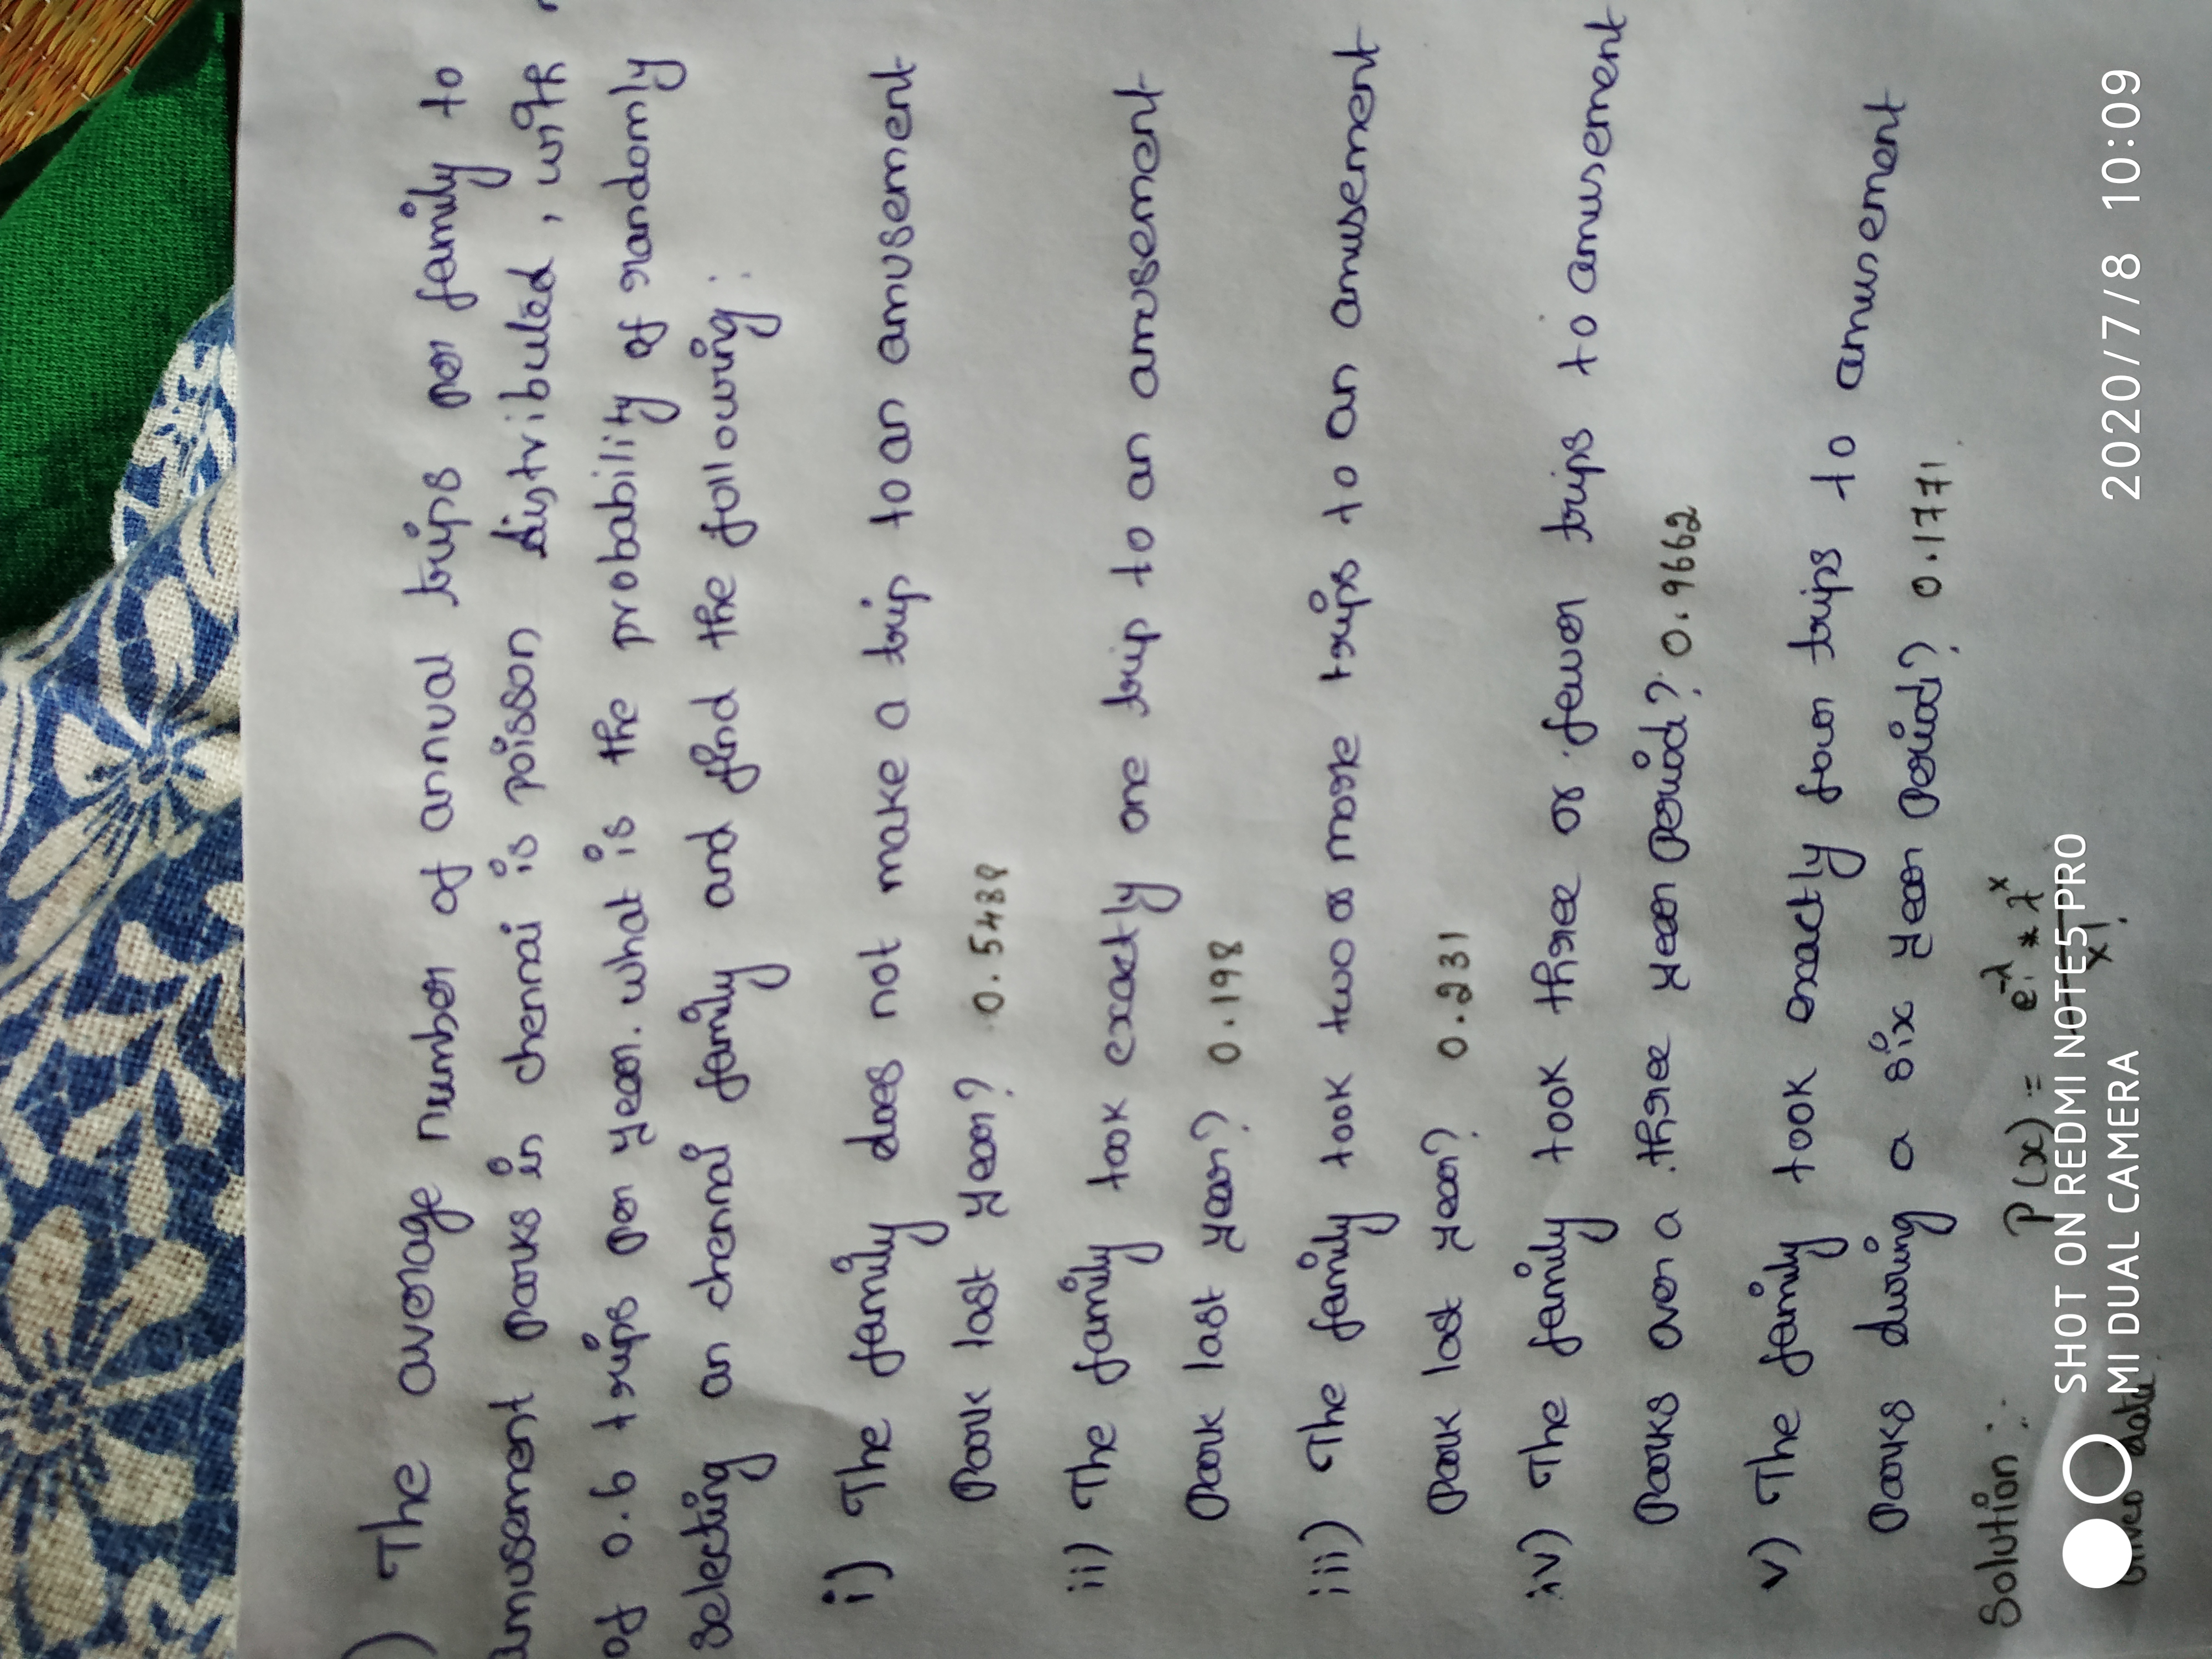 ) The average number of annual trips per family to
amusement parks in chennai is poisson distributed, with
of 0.6 trips per year. what is the probability of randomly
selecting an chennai family and find the following:
i) The family does not make a trip to an amusement
Park last year? 0.5488
ii) The family took exactly one trip to an amusement
Park last year? 0.198
iii) The family took two or more trips to an amusement
Park last year? 0.231
iv) The family took three or fewer trips to amusement
Parks over a three year period? 0.9662
v) The family took exactly four trips to amusement
Parks during a six year period? 0.1771
Solution:
P(x) = e^-λ * λ^x
x!
Given data
SHOT ON REDMI NOTE5 PRO
MI DUAL CAMERA
2020/7/8 10:09